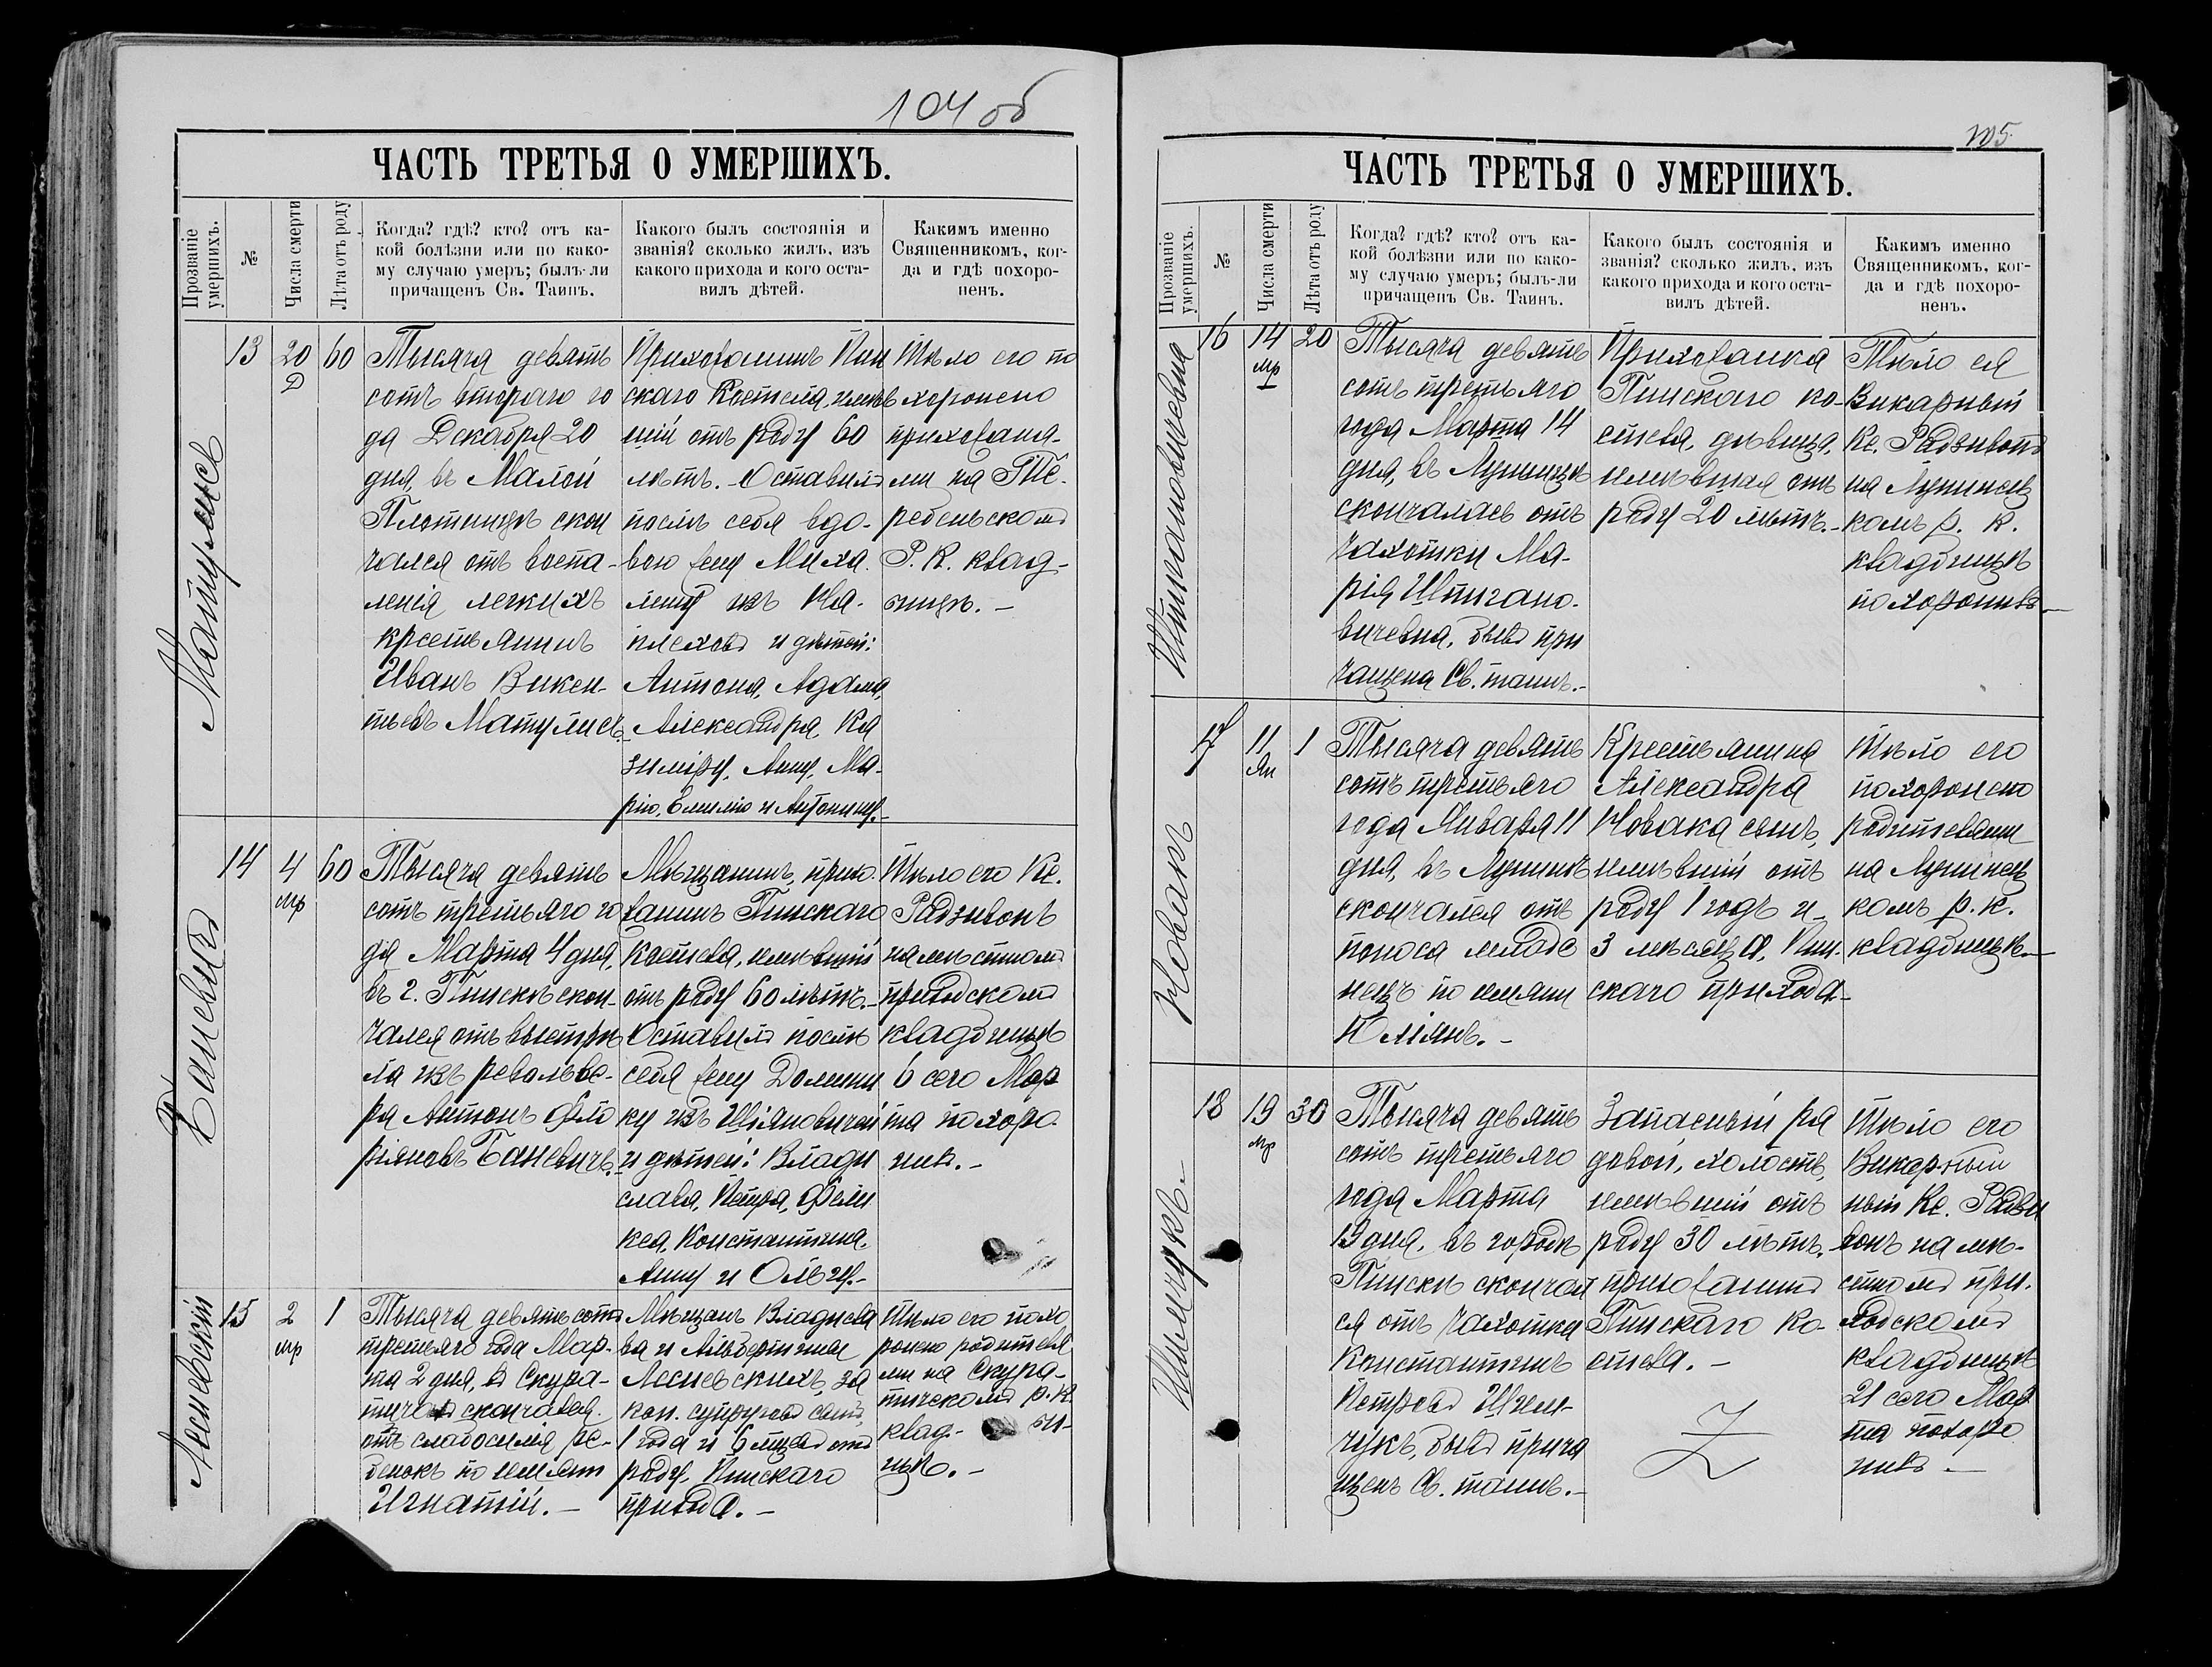 104 об
ЧАСТЬ ТРЕТЬЯ О УМЕРШИХЪ.
Прозваніе умершихъ.
№
Числа смерти
Лѣта отъ роду
Когда? гдѣ? кто? отъ ка-
кой болѣзни или по како-
му случаю умеръ; былъ-ли
причащенъ Св. Таинъ.
Какого былъ состоянія и
званія? сколько жилъ, изъ
какого прихода и кого оста-
вилъ дѣтей.
Какимъ именно
Священникомъ, ког-
да и гдѣ похоро-
ненъ.
Матулисъ
13
20
Д
60
Тысяча девять
сотъ второго го
да Декабря 20
дня, въ Малой
Плотницѣ скон
чался отъ воспа-
ленія легкихъ
крестьянинъ
Иванъ Викен-
тьевъ Матулисъ.
Прихожанинъ Пин
скаго Костела, имѣв
шій отъ роду 60
лѣтъ. - Оставилъ
послѣ себя вдо-
вою жену Миха
лину изъ
и дѣтей:
Антона, Адама,
Александра, Ка
зиміру, Анну, Ма-
рію, Емилію и Антонину.-
Тѣло его по
хоронено
прихожана-
ми на Те-
ребеньскомъ
Р. К. клад-
бищѣ. -
Баневичъ
14
4
мр
60
Тысяча девять
сотъ третьяго го
да Марта 4 дня,
въ г. Пинскѣ скон-
чался отъ выстрѣ
ла изъ револьве-
ра Антонъ Фло
ріяновъ Баневичъ.
Мѣщанинъ, прихо
жанинъ Пинскаго
Костела, имѣвшій
отъ роду 60 лѣтъ. -
Оставилъ послѣ
себя жену Домини
ку изъ Шіяновичей
и дѣтей: Влади
слава, Петра, Фели
кса, Константина,
Анну и Ольгу.-
Тѣло его Кс.
Радзивонъ
на мѣстномъ
приходскомъ
кладбищѣ
6 сего Мар
та похоро
нилъ. -
Лесневскій
15
2
мр
1
Тысяча девять сотъ
третьяго года Мар-
та 2 дня, въ Скура-
тичахъ скончался
отъ слабосилія ре-
бенокъ по имяни
Игнатій. -
Мѣщанъ Владисла
ва и Альбертины
Лесневскихъ, за
кон. супруговъ сынъ,
1 года и 6 мцевъ отъ
роду, Пинскаго
прихода. -
Тѣло его похо
ронено родителя
ми на Скура-
тичскомъ р. К.
клад- би-
щѣ. -
105
ЧАСТЬ ТРЕТЬЯ О УМЕРШИХЪ.
Прозваніе умершихъ.
№
Числа смерти
Лѣта отъ роду
Когда? гдѣ? кто? отъ ка-
кой болѣзни или по како-
му случаю умеръ; былъ-ли
причащенъ Св. Таинъ.
Какого былъ состоянія и
званія? сколько жилъ, изъ
какого прихода и кого оста-
вилъ дѣтей.
Какимъ именно
Священникомъ, ког-
да и гдѣ похоро-
ненъ.
16
14
мр
20
Тысяча девять
сотъ третьяго
года Марта 14
дня, въ
скончалась отъ
чахотки Ма-
рія
вичевна, бывъ при
чащена Св. таинъ. -
Прихожанка
Пинскаго ко-
стела, дѣвица,
имѣвшая отъ
роду 20 лѣтъ. -
Тѣло ея
Викарный
Кс. Радзивонъ
на Лунинец
комъ р. к.
кладбищѣ
похоронилъ -
Новакъ
17
11
Ян
1
Тысяча девять
сотъ третьяго
года Января 11
дня, въ
скончался отъ
поноса младе
нецъ по имяни
Юліянъ. -
Крестьянина
Александра
Новака сынъ,
имѣвшій отъ
роду 1 годъ и
3 мѣсяца, Пин-
скаго прихода -
Тѣло его
похоронено
родителями
на Лунинец
комъ р. к.
кладбищѣ -
Шимчукъ -
18
19
мр
30
Тысяча девять
сотъ третьяго
года Марта
19 дня, въ городѣ
Пинскѣ скончал
ся отъ чахотки
Константинъ
Петровъ
чукъ, бывъ прича
щенъ Св. таинъ. -
Запасный ря
довой, холостъ,
имѣвшій отъ
роду 30 лѣтъ,
прихожанинъ
Пинскаго Ко-
стела. -
Тѣло его
Викарный
ный Кс. Радзи
вонъ на мѣ-
стномъ при-
ходскомъ
кладбищѣ
21 сего Мар
та похоро
нилъ -